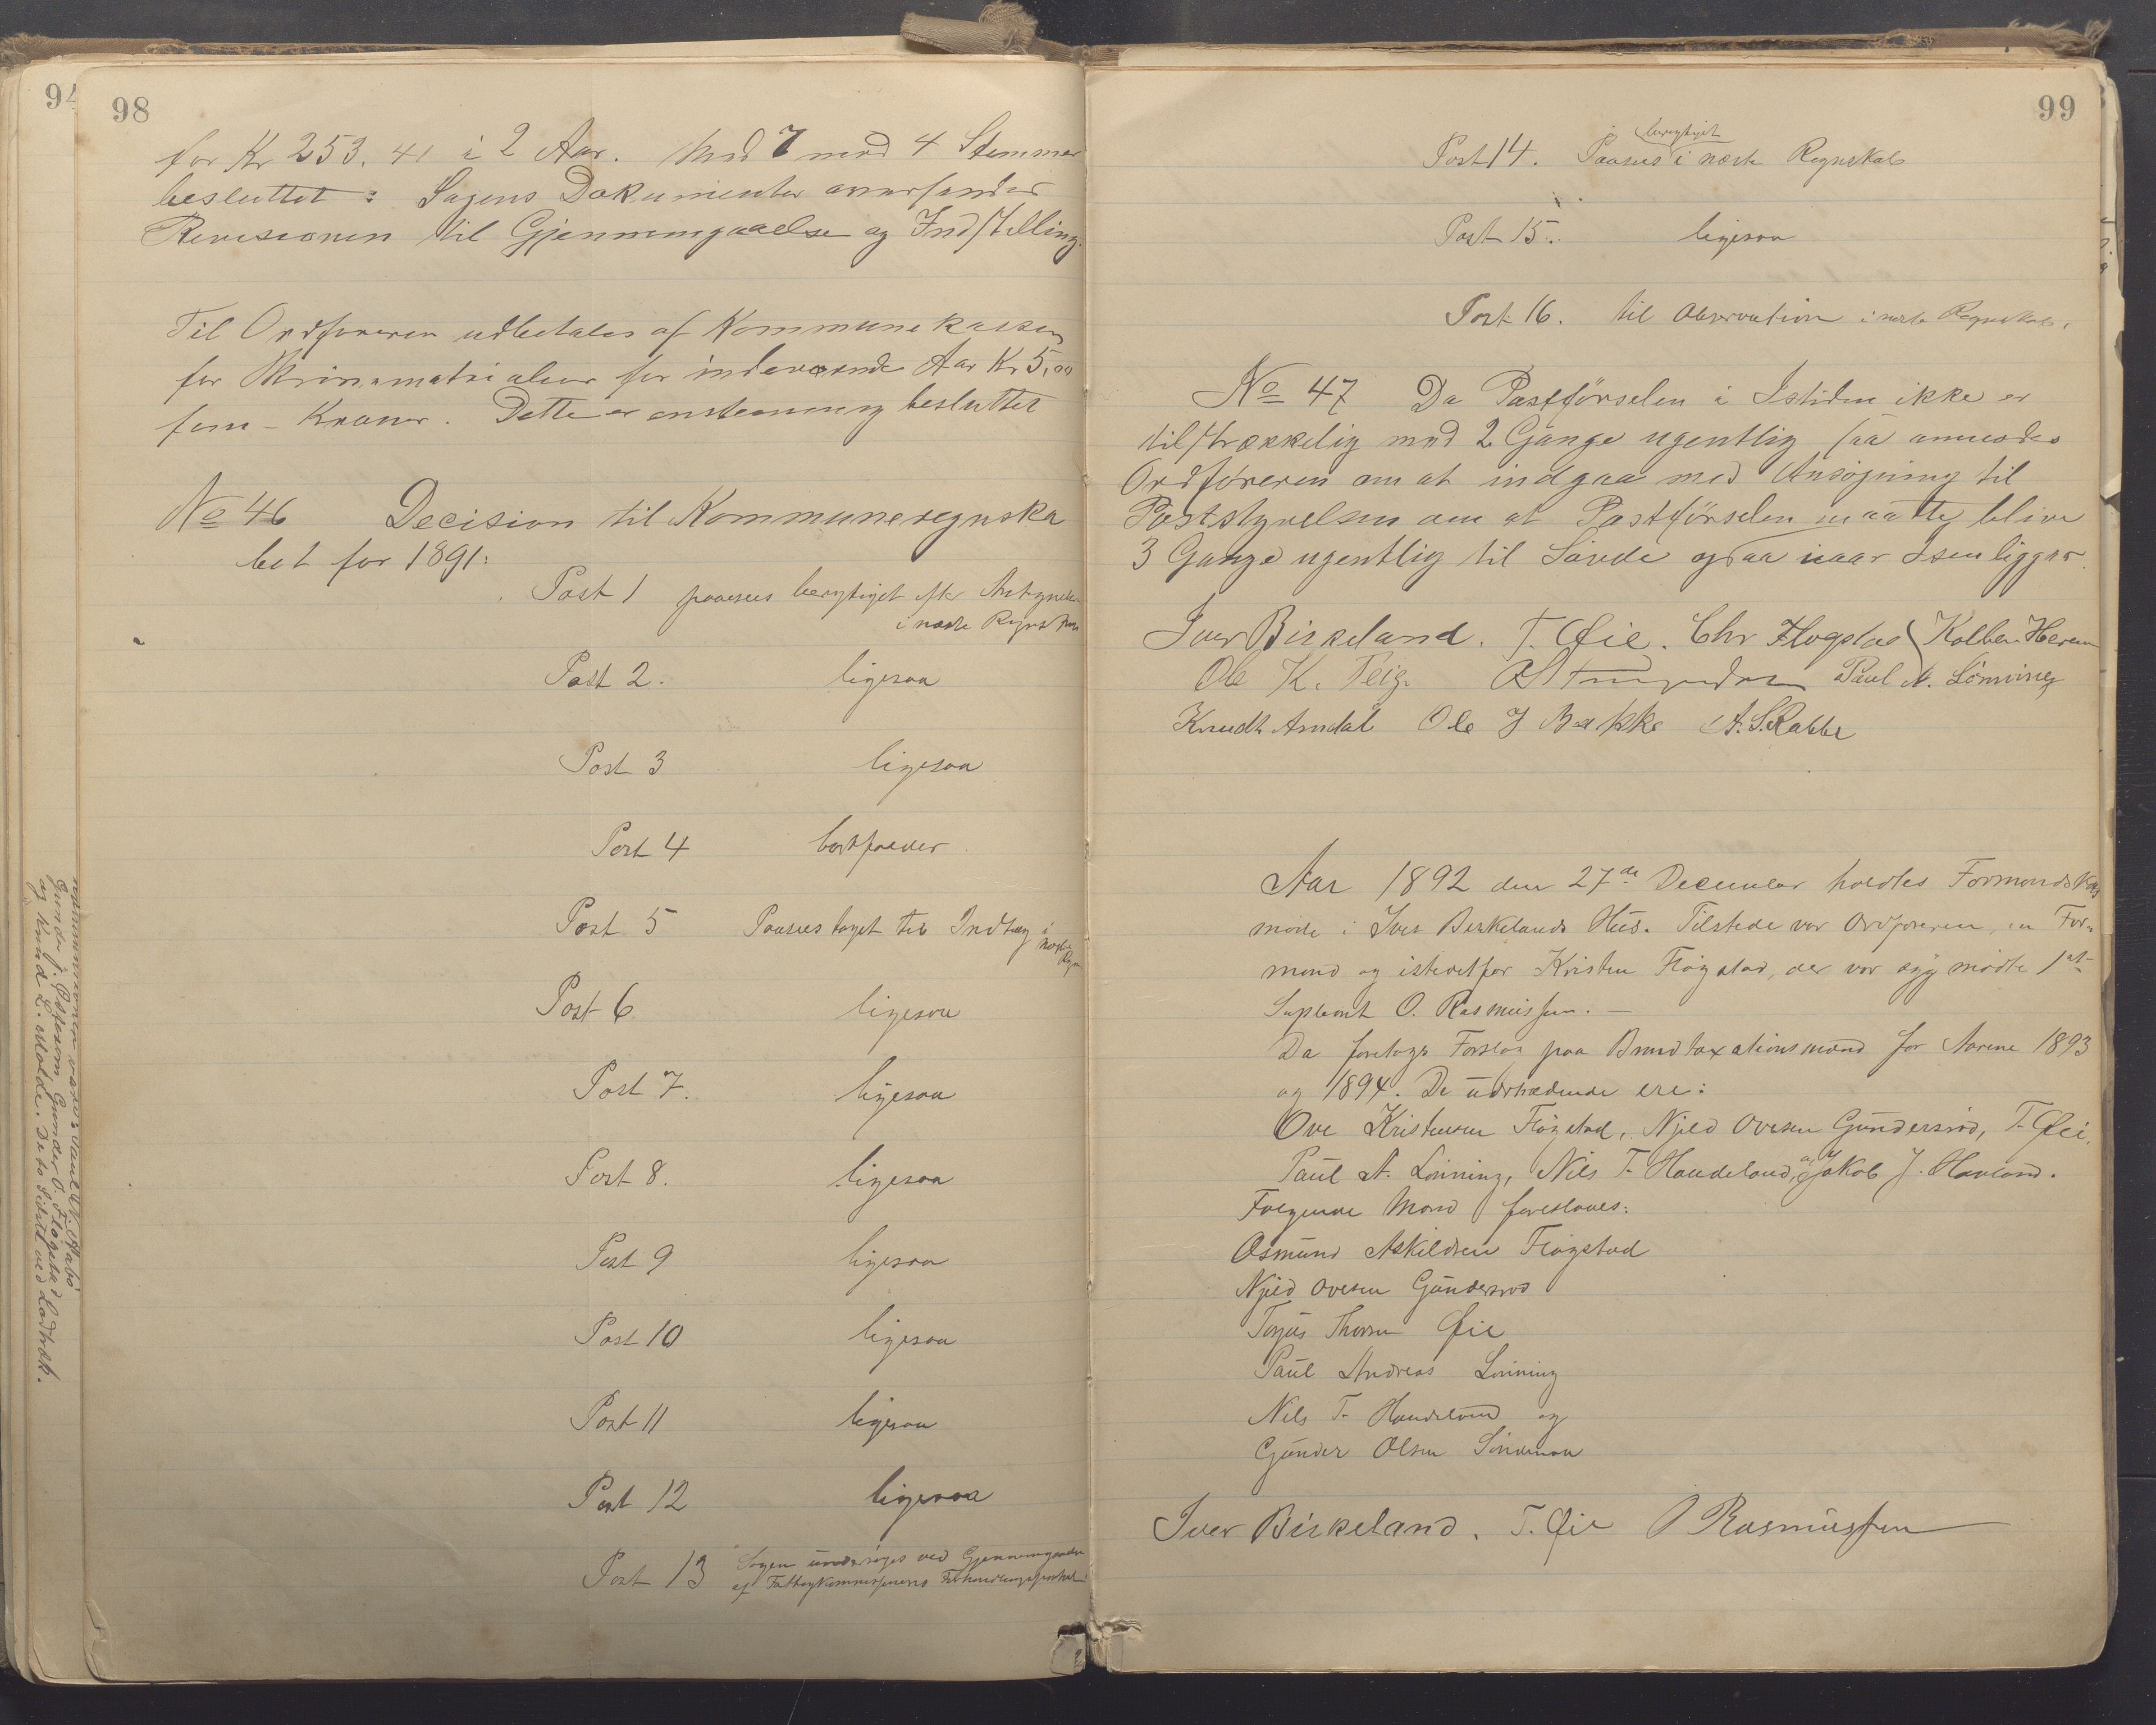 98
for Kr 253.41 i 2 Aar. Med 7 mod 4 Stemmer
besluttet: Sagens Dokumenter oversendes
Revisionen til Gjennemgaaelse og Indstilling.
Til Ordføreren udbetales af Kommunekassen
for Skrivematrialier for indeværende Aar Kr 5,00
fem - Kroner. Dette er enstemmig besluttet
No 46 Decision til Kommuneregnska
bet for 1891:
Post 1 paasees berigtiget
i næste
Post 2. ligesaa
Post 3 ligesaa
Post 4 bortfalder
Post 5 Paasees taget til Indtæg i
næste
Post 6 ligesaa
Post 7. ligesaa
Post 8. ligesaa
Post 9 ligesaa
Post 10 ligesaa
Post 11 ligesaa
Post 12 ligesaa
Post 13 Sagen undersøges ved Gjennemgaaelse
af Fattigkommissionens
99
berigtiget
Post 14. Paasees i næste Regnskab
Post 15. ligesaa
Post 16. til Observation i næste Regnskab.
No 47 Da Postførselen i Istiden ikke er
tilstrækkelig med 2 Gange ugentlig saa anmodes
Ordføreren om at indgaa med Ansøgning til
Poststyrelsen om at Postførselen maatte blive
3 Gange ugentlig til Sævde ogsaa naar Isen ligger.
Iver Birkeland. T. Øie. Chr Fløgstad Kolben Herem
Ole K. Teig. Paul A. Lønning
Knudt Amdal Ole J Bakke A. S. Rabbe
Aar 1892 den 27de December holdtes Formandskabs
møde i Iver Birkelands Hus. Tilstede var Ordføreren, en For-
mand og istedetfor Kristen Fløgstad, der var syg mødte 1ste
Supleant O. Rasmussen. —
Da foretoges Forslag paa Brandtaxationsmænd for Aarene 1893
og 1894. De udtrædende ere:
Ove Kristensen Fløgstad, Njeld Ovesen Gundersrød, T. Øie,
Paul A. Lønning, Nils T. Handeland, og Jakob J. Havland.
Følgende Mænd foreslaaes:
Osmund Askildsen Fløgstad
Njeld Ovesen Gundersrød
Torjus Thorsen Øie
Paul Andreas Lønning
Nils T. Handeland og
Gunder Olsen Søndenaa
Iver Birkeland. T. Øie O Rasmussen